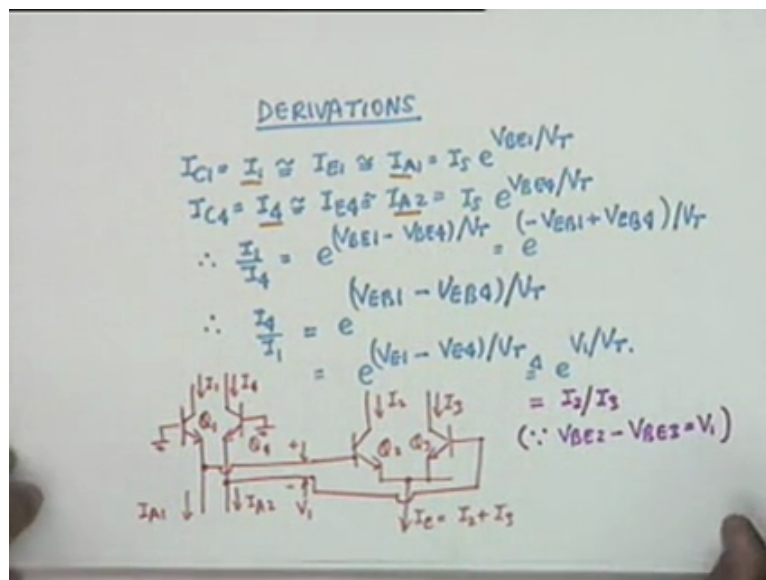 DERIVATIONS
I_C1 = I_1 ≅ I_E1 ≅ I_A1 = I_S e^(V_BE1/V_T)
I_C4 = I_4 ≅ I_E4 ≅ I_A2 = I_S e^(V_BE4/V_T)
∴ I_1/I_4 = e^((V_BE1 - V_BE4)/V_T) = e^((-V_EB1 + V_EB4)/V_T)
∴ I_4/I_1 = e^((V_EB1 - V_EB4)/V_T)
= e^((V_E1 - V_E4)/V_T) ≜ e^(V_1/V_T).
= I_2/I_3
(∵ V_BE2 - V_BE3 = V_1)
I_1 I_4 I_2 I_3
Q_1 Q_4 Q_2 Q_3
+
-
I_A1 I_A2 V_1 I_C = I_2 + I_3